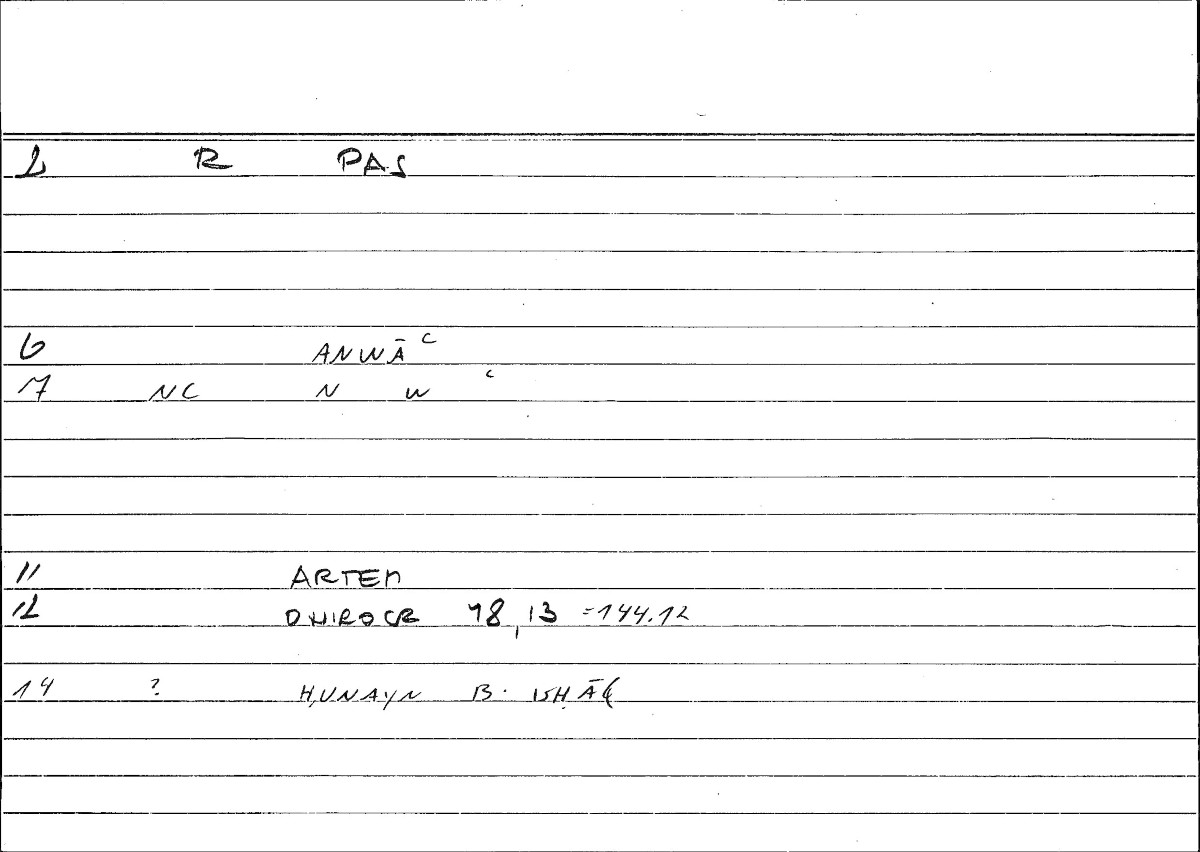 2 R PAS
6 ANWĀʿ
7 NC N W ʿ
11 ARTEM
12 ONIROCR 18,13 =144.12
14 ? ḤUNAYN B. ISḤĀQ